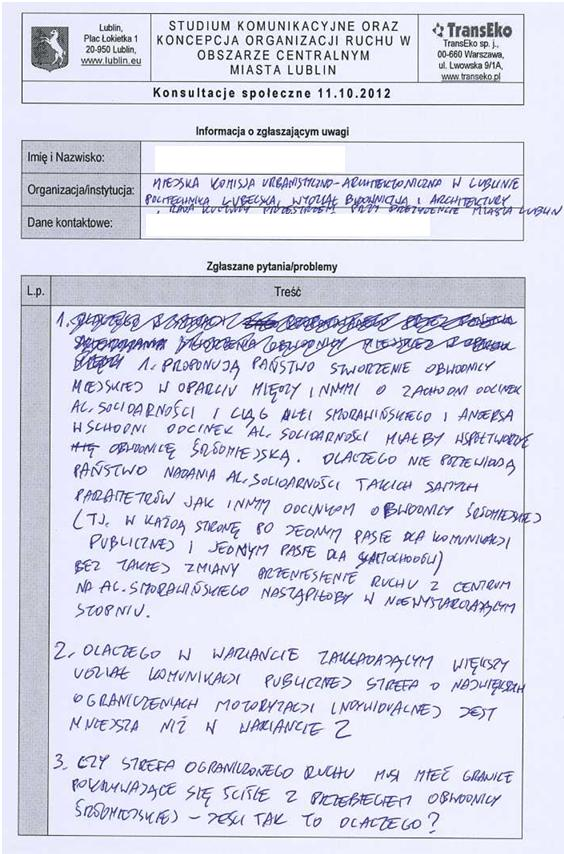 Lublin,
Plac Łokietka 1
20-950 Lublin,
www.lublin.eu
STUDIUM KOMUNIKACYJNE ORAZ
KONCEPCJA ORGANIZACJI RUCHU W
OBSZARZE CENTRALNYM
MIASTA LUBLIN
TransEko
TransEko sp. j.,
00-660 Warszawa,
ul. Lwowska 9/1A,
www.transeko.pl
Konsultacje społeczne 11.10.2012
Informacja o zgłaszającym uwagi
Imię i Nazwisko:
Organizacja/instytucja:
MIEJSKA KOMISJA URBANISTYCZNO-ARCHITEKTONICZNA W LUBLINIE
POLITECHNIKA LUBELSKA, WYDZIAŁ BUDOWNICTWA I ARCHITEKTURY
, RADA KULTURY PRZESTRZENI PRZY PREZYDENCIE MIASTA LUBLIN
Dane kontaktowe:
Zgłaszane pytania/problemy
L.p.
Treść
1.
1. PROPONUJĄ PAŃSTWO STWORZENIE OBWODNICY
MIEJSKIEJ W OPARCIU MIĘDZY INNYMI O ZACHODNI ODCINEK
AL. SOLIDARNOŚCI I CIĄG ALEI SMORAWIŃSKIEGO I ANDERSA
WSCHODNI ODCINEK AL. SOLIDARNOŚCI MIAŁBY WSPÓŁTWORZYĆ
OBWODNICĘ ŚRÓDMIEJSKĄ. DLACZEGO NIE PRZEWIDUJĄ
PAŃSTWO NADANIA AL. SOLIDARNOŚCI TAKICH SAMYCH
PARAMETRÓW JAK INNYM ODCINKOM OBWODNICY ŚRÓDMIEJSKIEJ
(TJ. W KAŻDĄ STRONĘ PO JEDNYM PASIE DLA KOMUNIKACJI
PUBLICZNEJ I JEDNYM PASIE DLA SAMOCHODÓW)
BEZ TAKIEJ ZMIANY PRZENIESIENIE RUCHU Z CENTRUM
NA AL. SMORAWIŃSKIEGO NASTĄPIŁOBY W NIEWYSTARCZAJĄCYM
STOPNIU.
2. DLACZEGO W WARIANCIE ZAKŁADAJĄCYM WIĘKSZY
UDZIAŁ KOMUNIKACJI PUBLICZNEJ STREFA O NAJWIĘKSZYCH
OGRANICZENIACH MOTORYZACJI INDYWIDUALNEJ JEST
MNIEJSZA NIŻ W WARIANCIE 2
3. CZY STREFA OGRANICZONEGO RUCHU MUSI MIEĆ GRANICE
POKRYWAJĄCE SIĘ ŚCIŚLE Z PRZEBIEGIEM OBWODNICY
ŚRÓDMIEJSKIEJ – JEŚLI TAK TO DLACZEGO?